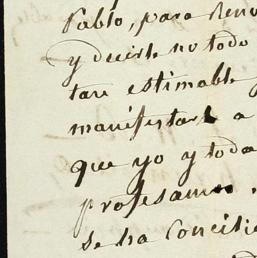 Pablo, para Reno
y decirle no todo
tan estimable
manifestarl a
que yo y toda
profesamos
se ha Concilia